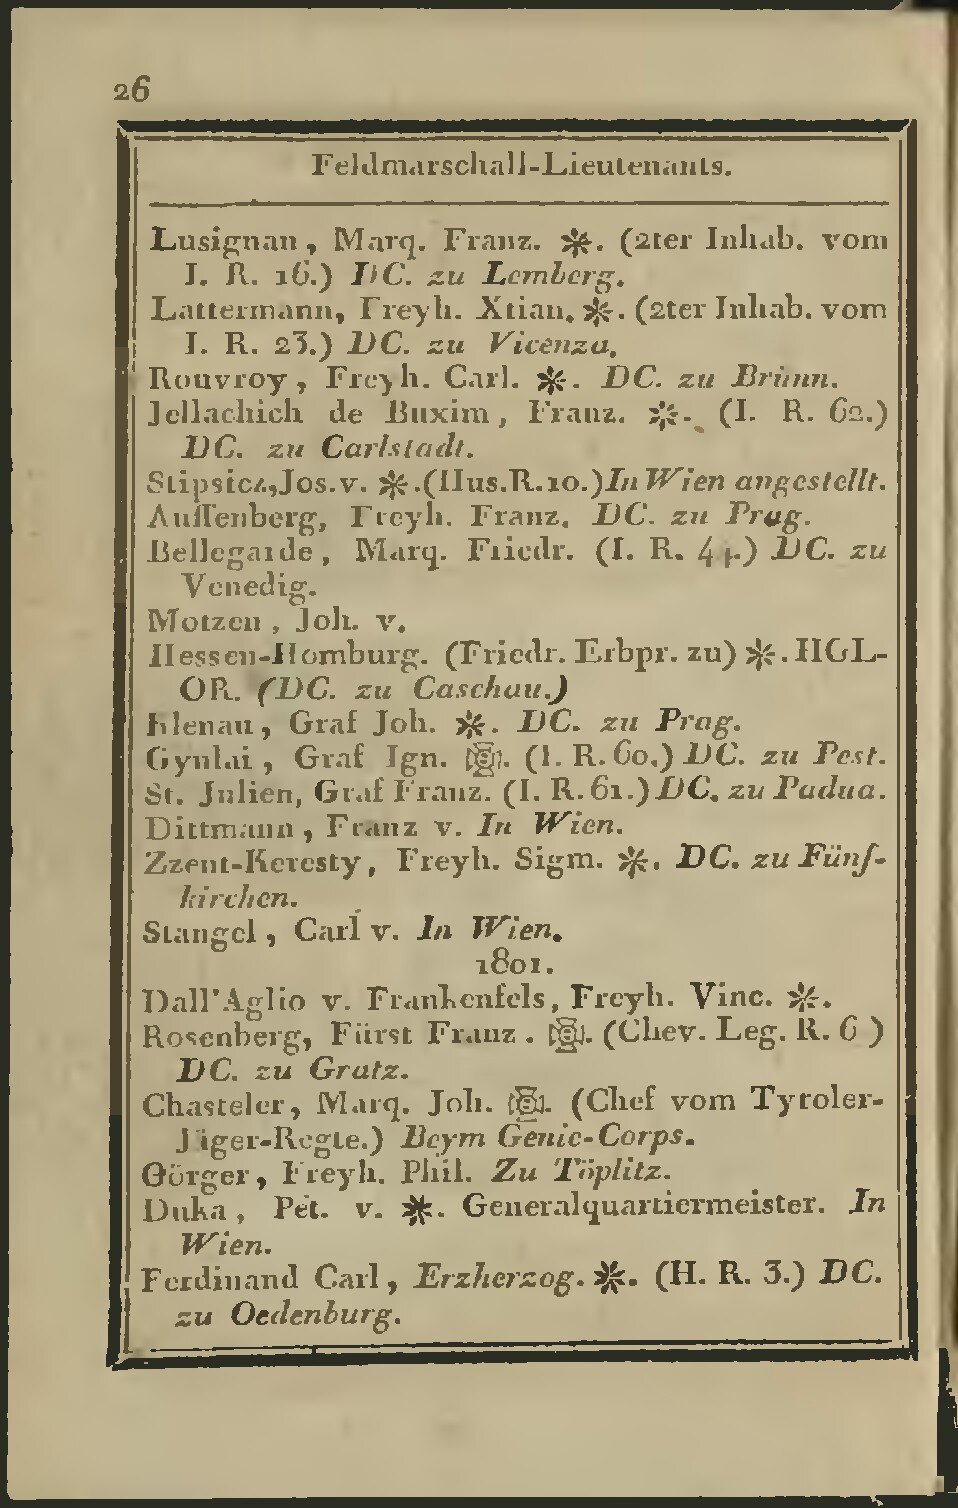 26
Feldmarschall-Lieutenants.
Lusignan, Marq. Franz. ✻. (2ter Inhab. vom
I. R. 16.) DC. zu Lemberg.
Lattermann, Freyh. Xtian. ✻. (2ter Inhab. vom
I. R. 23.) DC. zu Vicenza.
Rouvroy, Freyh. Carl. ✻. DC. zu Brünn.
Jellachich de Buxim, Franz. ✻. (I. R. 62.)
DC. zu Carlstadt.
Stipsicz, Jos. v. ✻. (Hus. R. 10.) In Wien angestellt.
Auffenberg, Freyh. Franz. DC. zu Prag.
Bellegarde, Marq. Friedr. (I. R. 44.) DC. zu
Venedig.
Motzen, Joh. v.
Hessen-Homburg. (Friedr. Erbpr. zu) ✻. HGL-
OR. (DC. zu Caschau.)
Klenau, Graf Joh. ✻. DC. zu Prag.
Gyulai, Graf Ign. (I. R. 60.) DC. zu Pest.
St. Julien, Graf Franz. (I. R. 61.) DC. zu Padua.
Dittmann, Franz v. In Wien.
Zzent-Keresty, Freyh. Sigm. ✻. DC. zu Fünf-
kirchen.
Stangel, Carl v. In Wien.
1801.
Dall'Aglio v. Frankenfels, Freyh. Vinc. ✻.
Rosenberg, Fürst Franz. (Chev. Leg. R. 6)
DC. zu Gratz.
Chasteler, Marq. Joh. (Chef vom Tyroler-
Jäger-Regte.) Beym Genie-Corps.
Görger, Freyh. Phil. Zu Töplitz.
Duka, Pet. v. ✻. Generalquartiermeister. In
Wien.
Ferdinand Carl, Erzherzog. ✻. (H. R. 3.) DC.
zu Oedenburg.